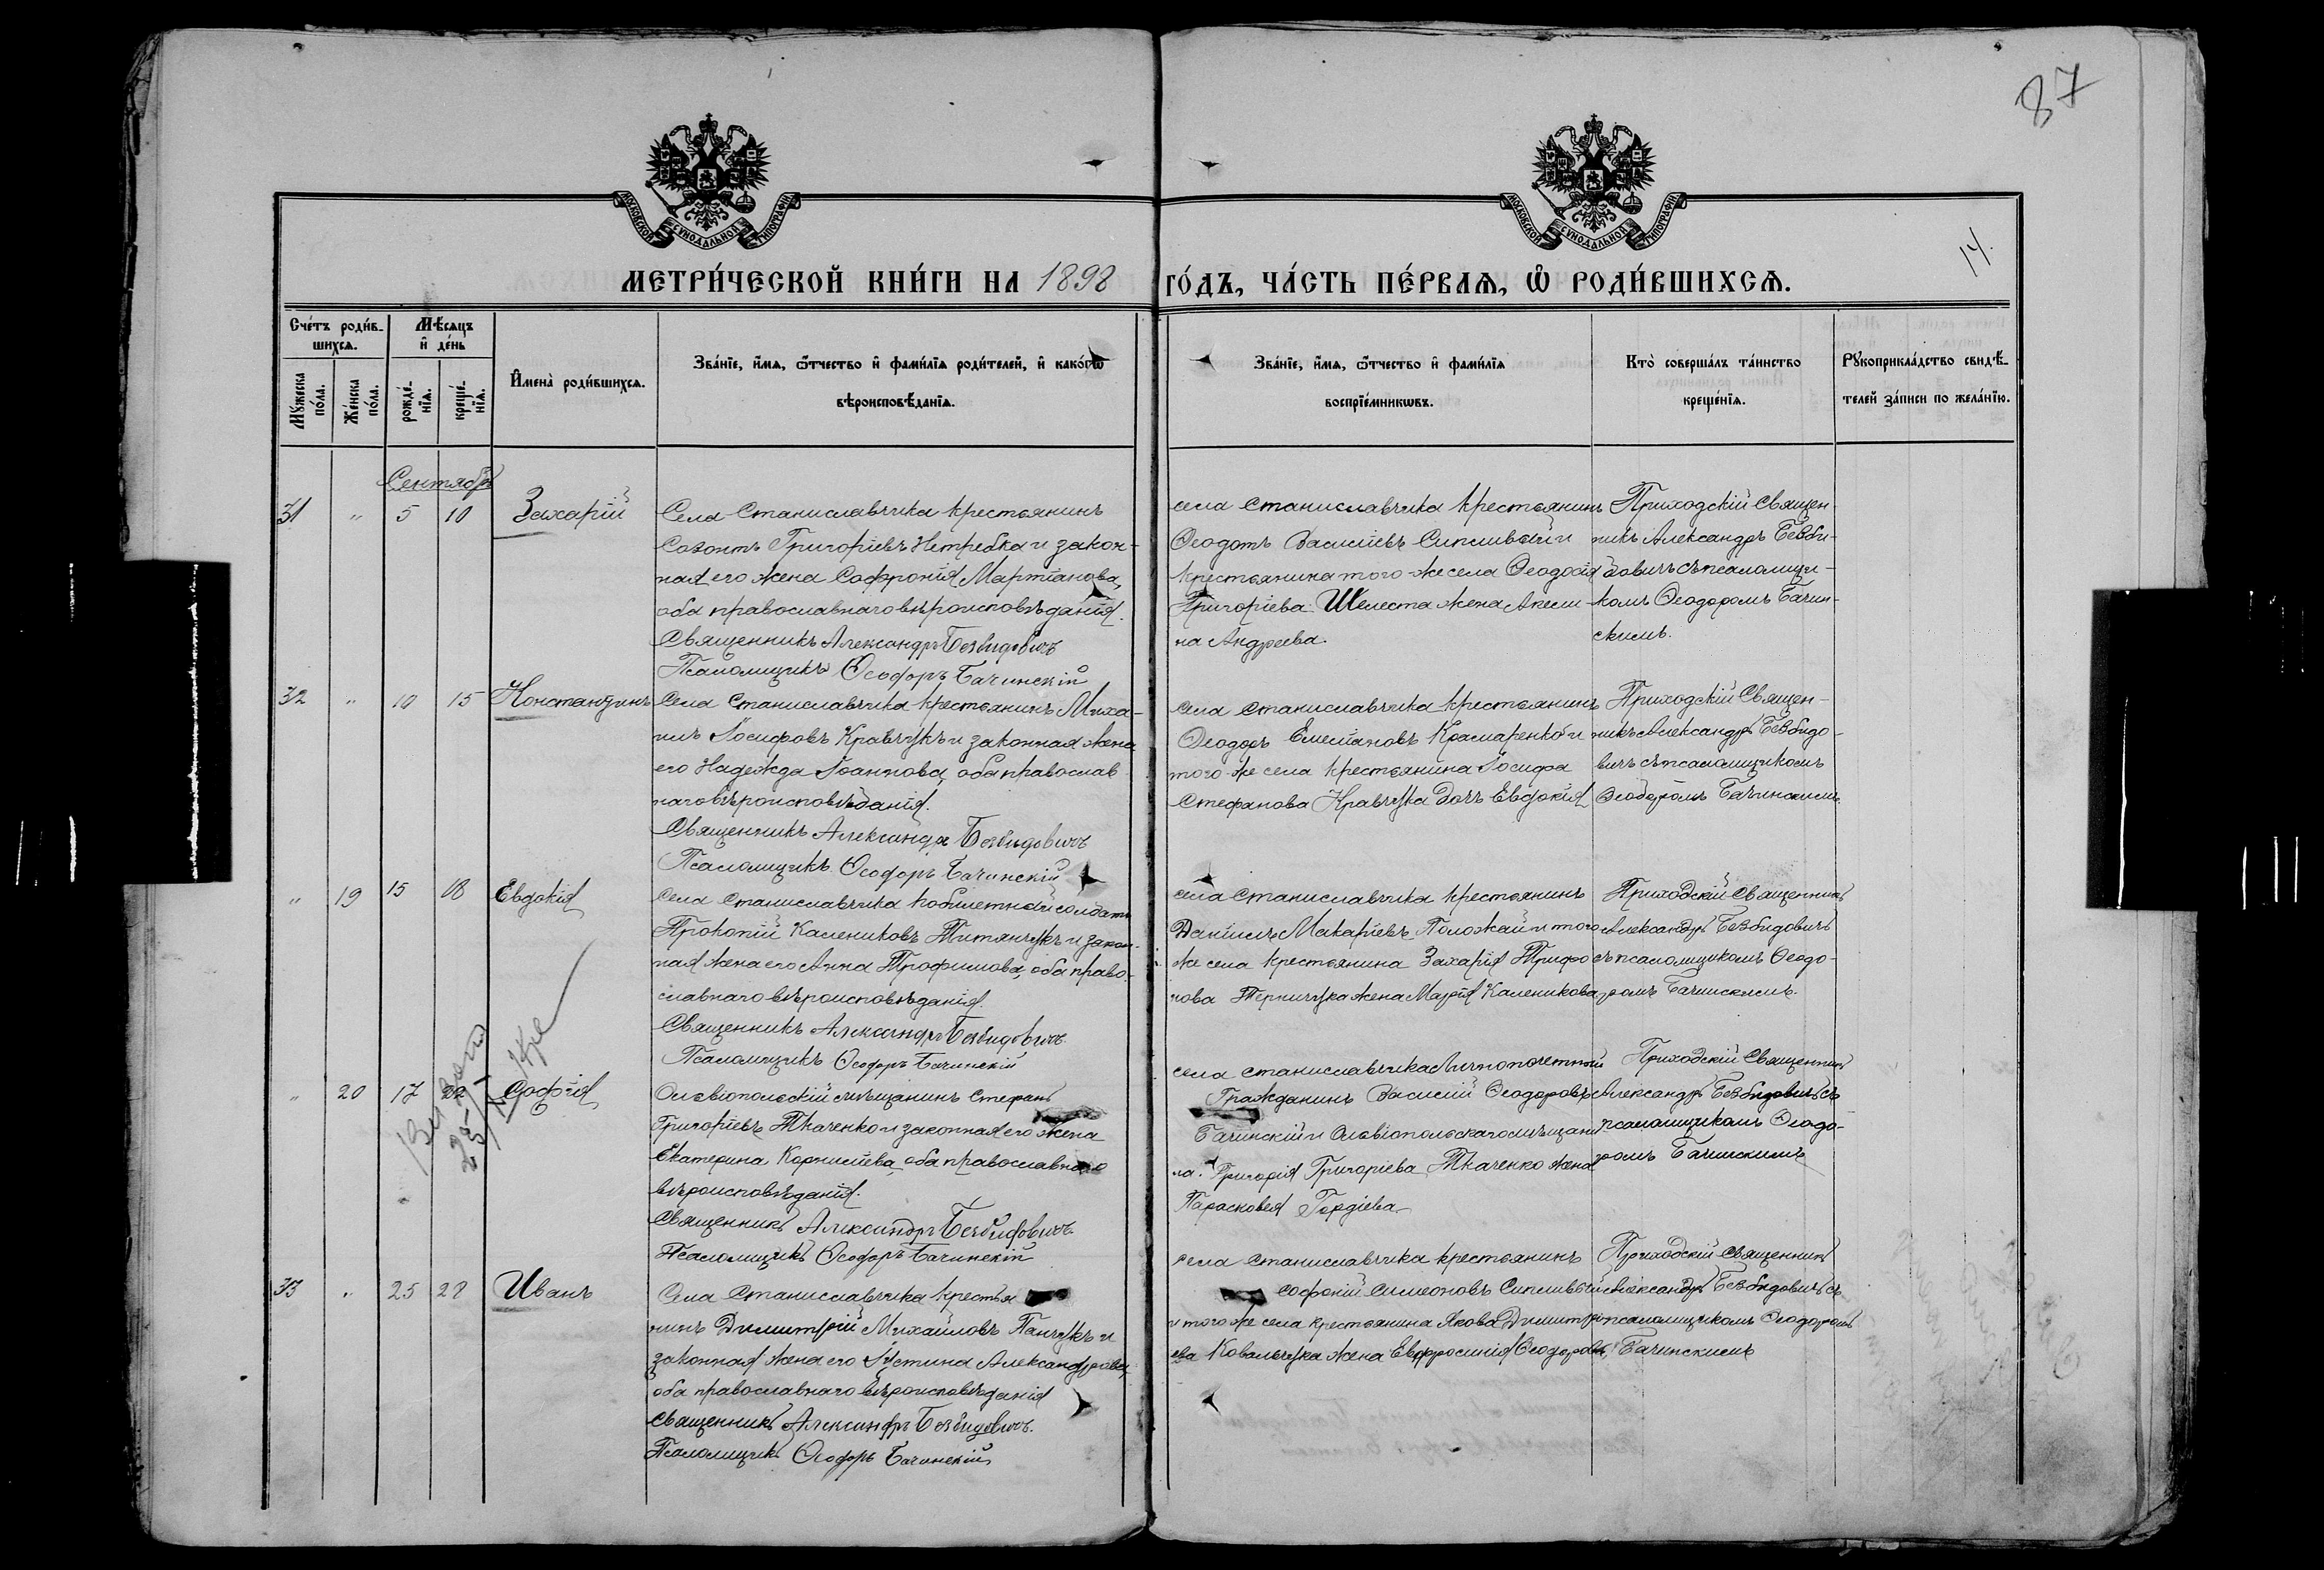 87
14.
МОСКОВСКОЙ СѴНОДАЛЬНОЙ ТИПОГРАФІИ
МОСКОВСКОЙ СѴНОДАЛЬНОЙ ТИПОГРАФІИ
МЕТРИ́ЧЕСКОЙ КНИ́ГИ НА 1898 ГО́ДЪ, ЧА́СТЬ ПЕ́РВАѦ, Ѡ҆ РОДИ́ВШИХСѦ.
Сче́тъ роди́в-
шихсѧ.
Мѣ́сѧцъ
и҆ де́нь
Мꙋ́жеска
по́ла.
Же́нска
по́ла.
рожде́-
нїѧ.
креще́-
нїѧ.
И҆мена̀ роди́вшихсѧ.
Зва́нїе, и҆́мѧ, ѻ҆́тчество и҆ фами́лїѧ роди́телей, и҆ како́гѡ
вѣроисповѣ́данїѧ.
Зва́нїе, и҆́мѧ, ѻ҆́тчество и҆ фами́лїѧ
воспрїе́мникѡвъ.
Кто̀ соверша́лъ та́инство
креще́нїѧ.
Рꙋкоприкла́дство свидѣ́-
телей за́писи по жела́нїю.
Сентябрь
31 " 5 10 Захарій
Села Станиславчика крестьянинъ
Созонтъ Григоріевъ Нетребка и закон-
ная его жена Софронія Мартіанова,
оба православнаго вѣроисповѣданія.
Священникъ Александръ Безвидовичъ
Псаломщикъ Ѳеодоръ Бачинскій
села Станиславчика крестьянинъ
Ѳеодотъ Василіевъ Сипливый и
крестьянина того-же села Ѳеодосія
Григоріева Шелеста жена Акели-
на Андреева.
Приходскій Священ-
никъ Александръ Безви-
довичъ съ псаломщи-
комъ Ѳеодоромъ Бачин-
скимъ.
32 " 10 15 Константинъ
Села Станиславчика крестьянинъ Миха-
илъ Іосифовъ Кравчукъ и законная жена
его Надежда Іоаннова, оба православ
наго вѣроисповѣданія.
Священникъ Александръ Безвидовичъ
Псаломщикъ Ѳеодоръ Бачинскій
Села Станиславчика крестьянинъ
Ѳеодоръ Емеліановъ Крамаренко и
того-же села крестьянина Іосифа
Стефанова Кравчука дочь Евдокія
Приходскій Священ-
никъ Александръ Безвидо-
вичъ съ псаломщикомъ
Ѳеодоромъ Бачинскимъ
" 19 15 18 Евдокія
Села Станиславчика побилетный солдатъ
Прокопій Калениковъ Титянчукъ и закон-
ная жена его Анна Трофимова, оба право-
славнаго вѣроисповѣданія.
Священникъ Александръ Безвидовичъ
Псаломщикъ Ѳеодоръ Бачинскій
села Станиславчика крестьянинъ
Даніилъ Макаріевъ Положай и того
же села крестьянина Захарія Трифо
нова Терничука жена Марія Каленикова
Приходскій Священникъ
Александръ Безвидовичъ
съ псаломщикомъ Ѳеодо-
ромъ Бачинскимъ.
" 20 17 22 Софія
Ольвіопольскій мѣщанинъ Стефанъ
Григоріевъ Ткаченко и законная его жена
Екатерина Корниліева, оба православнаго
вѣроисповѣданія.
Священникъ Александръ Безвидовичъ
Псаломщикъ Ѳеодоръ Бачинскій
села Станиславчика Личнопочетный
Гражданинъ Василій Ѳеодоровъ
Бачинскій и Ольвіопольскаго мѣщани
на Григорія Григоріева Ткаченко жена
Парасковея Гордіева
Приходскій Священникъ
Александръ Безвидовичъ съ
псаломщикомъ Ѳеодо-
ромъ Бачинскимъ
33 " 25 28 Иванъ
Села Станиславчика крестья
нинъ Димитрій Михаиловъ Панчукъ и
законная жена его Іустина Александрова,
оба православнаго вѣроисповѣданія
Священникъ Александръ Безвидовичъ.
Псаломщикъ Ѳеодоръ Бачинскій
села Станиславчика крестьянинъ
Софоній Симеоновъ Сипливый
и того же села крестьянина Якова Димитрі
ева Ковальчука жена Евфросинія Ѳеодорова
Приходскій Священникъ
Александръ Безвидовичъ съ
псаломщикомъ Ѳеодоромъ
Бачинскимъ